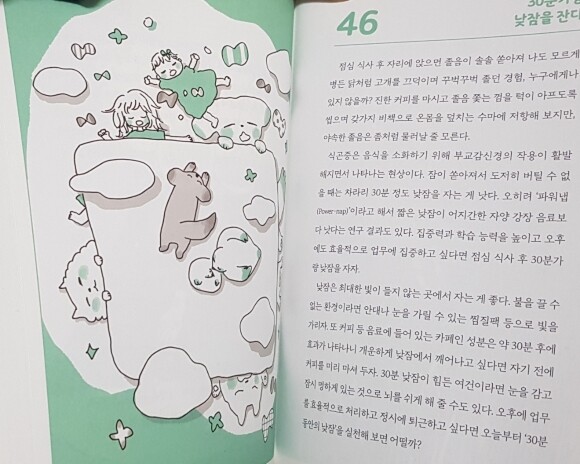 46
30분가
낮잠을 잔다
점심 식사 후 자리에 앉으면 졸음이 솔솔 쏟아져 나도 모르게
병든 닭처럼 고개를 끄덕이며 꾸벅꾸벅 졸던 경험, 누구에게나
있지 않을까? 진한 커피를 마시고 졸음 쫓는 껌을 턱이 아프도록
씹으며 갖가지 비책으로 온몸을 덮치는 수마에 저항해 보지만,
야속한 졸음은 좀처럼 물러날 줄 모른다.
식곤증은 음식을 소화하기 위해 부교감신경의 작용이 활발
해지면서 나타나는 현상이다. 잠이 쏟아져서 도저히 버틸 수 없
을 때는 차라리 30분 정도 낮잠을 자는 게 낫다. 오히려 ‘파워냅
(Power-nap)’이라고 해서 짧은 낮잠이 어지간한 자양 강장 음료보
다 낫다는 연구 결과도 있다. 집중력과 학습 능력을 높이고 오후
에도 효율적으로 업무에 집중하고 싶다면 점심 식사 후 30분가
량 낮잠을 자자.
낮잠은 최대한 빛이 들지 않는 곳에서 자는 게 좋다. 불을 끌 수
없는 환경이라면 안대나 눈을 가릴 수 있는 찜질팩 등으로 빛을
가리자. 또 커피 등 음료에 들어 있는 카페인 성분은 약 30분 후에
효과가 나타나니 개운하게 낮잠에서 깨어나고 싶다면 자기 전에
커피를 미리 마셔 두자. 30분 낮잠이 힘든 여건이라면 눈을 감고
잠시 멍하게 있는 것으로 뇌를 쉬게 해 줄 수도 있다. 오후에 업무
를 효율적으로 처리하고 정시에 퇴근하고 싶다면 오늘부터 ‘30분
동안의 낮잠’을 실천해 보면 어떨까?